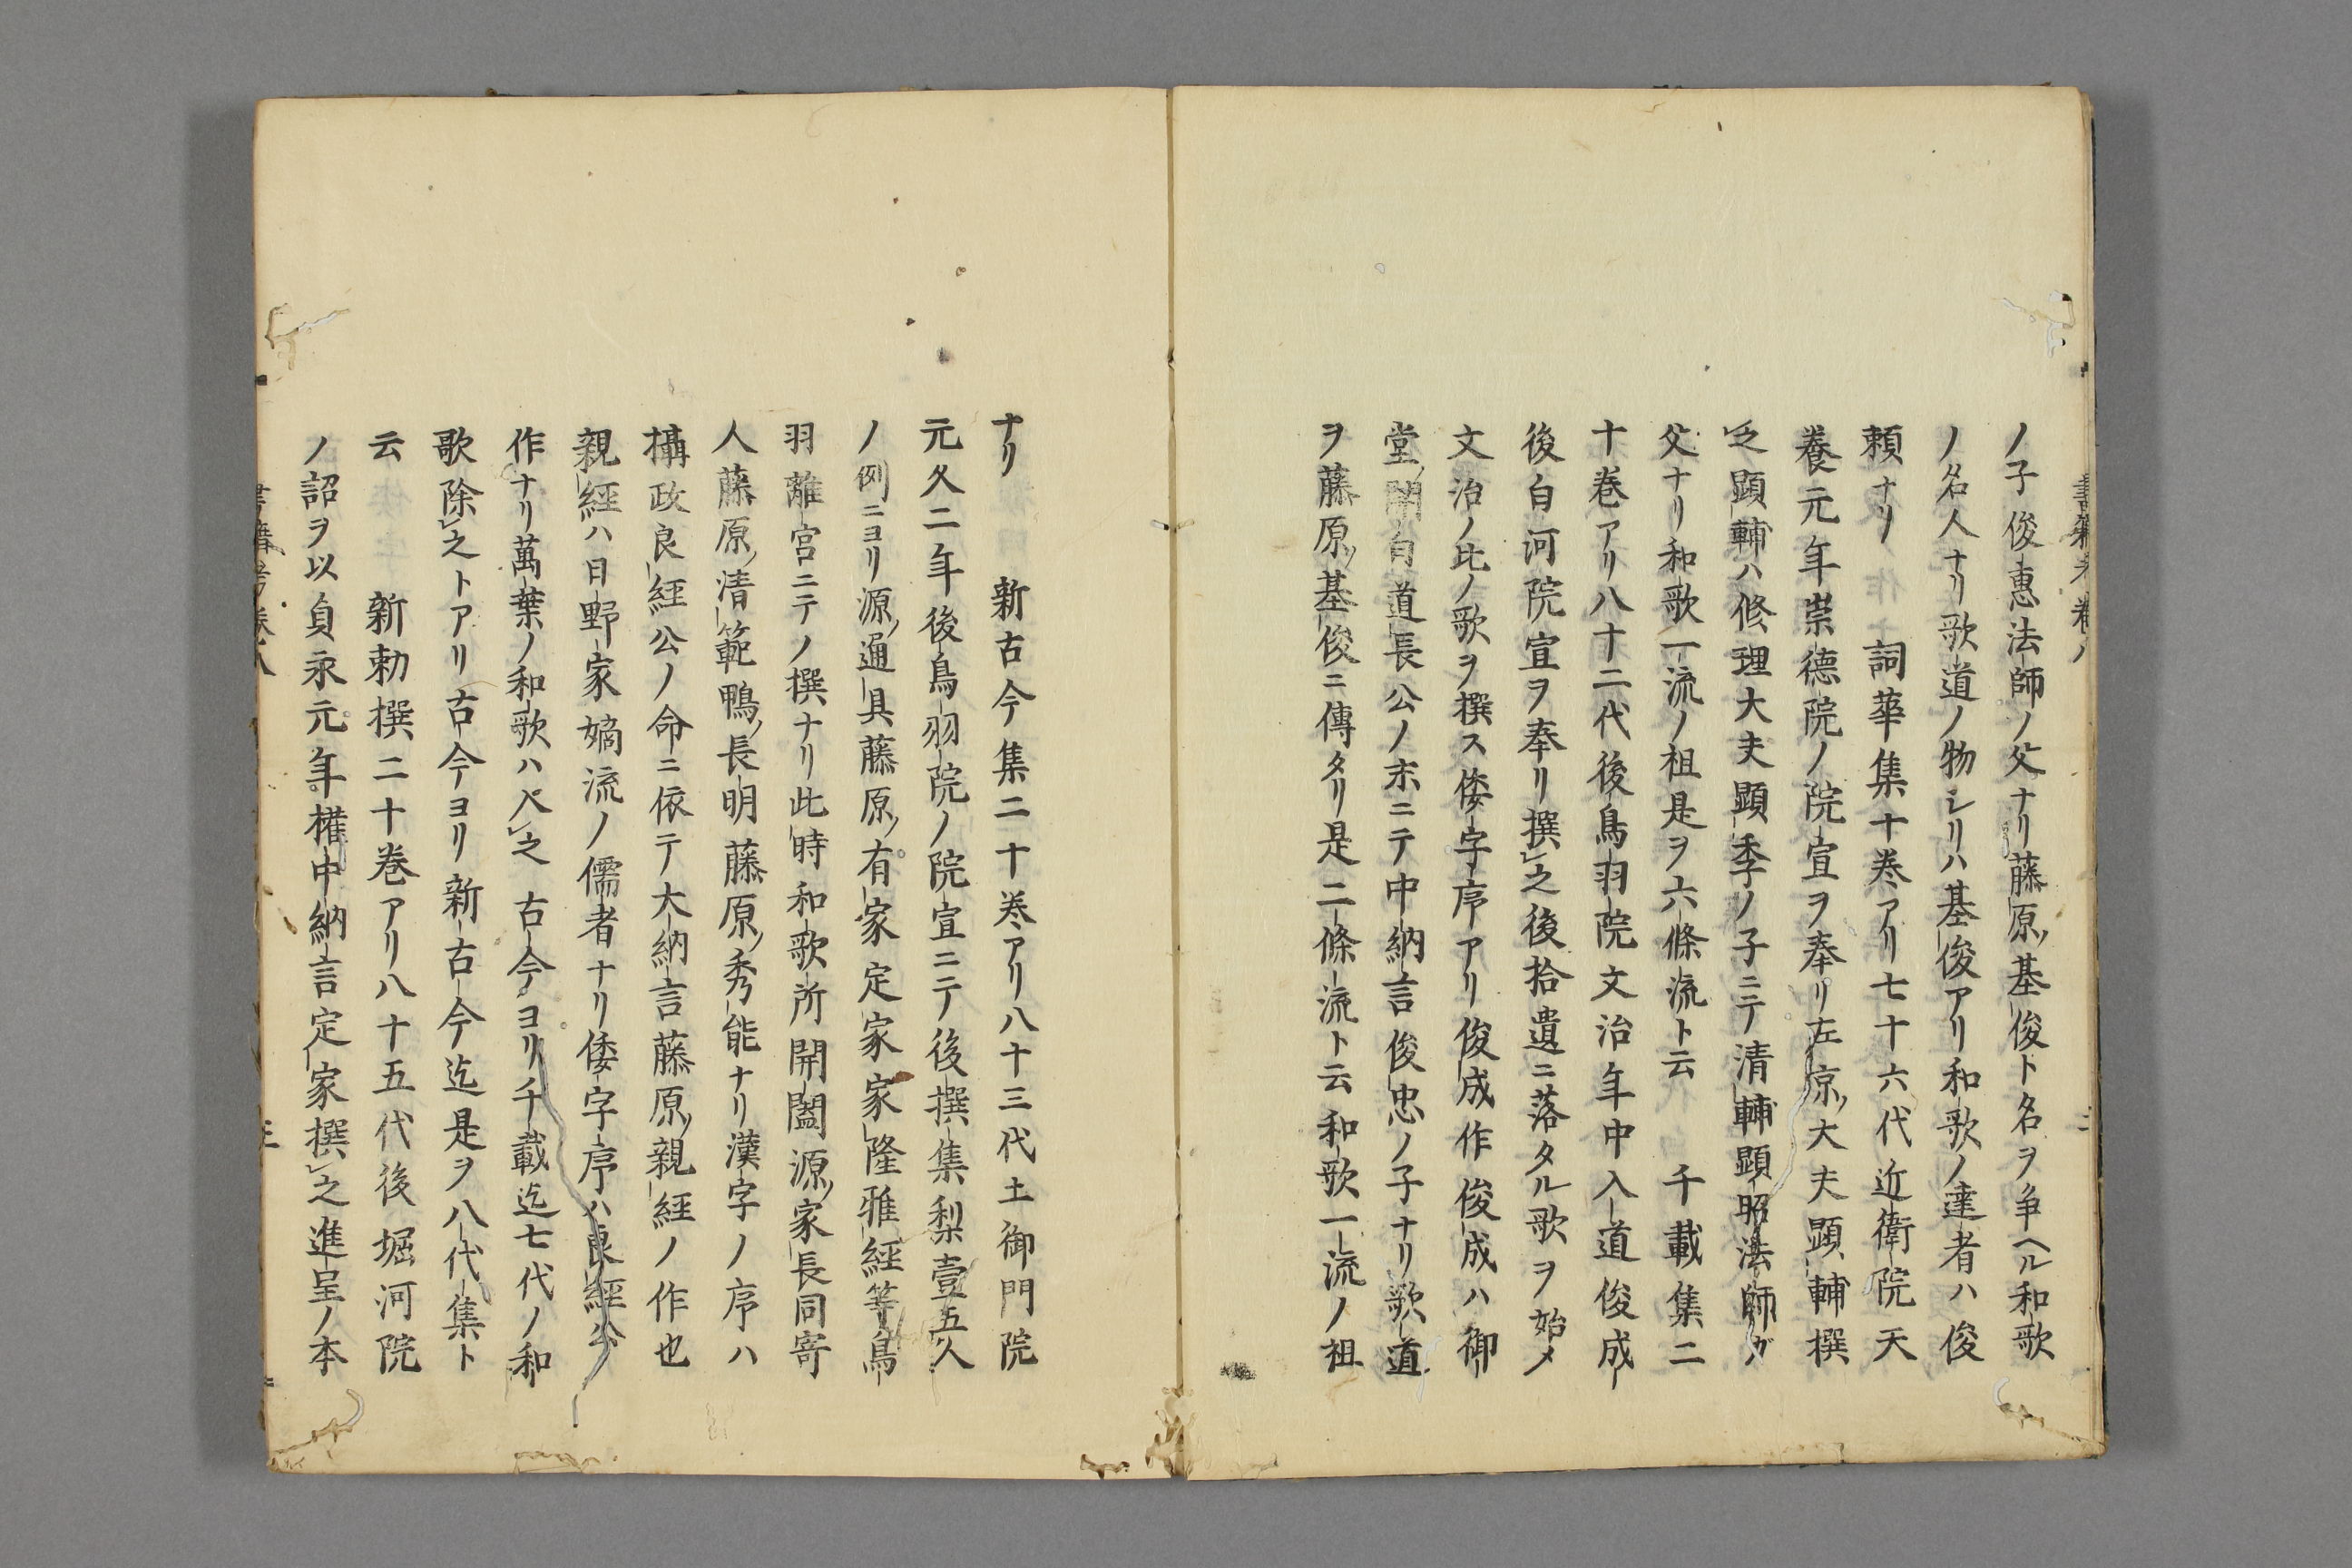 ノ子俊惠法師ノ父ナリ藤原ノ基俊ト名ヲ争ヘル和歌
ノ名人ナリ歌道ノ物シリハ基俊アリ和歌ノ達者ハ俊
頼ナリ　詞華集十巻アリ七十六代近衛院天
養元年崇德院ノ院宣ヲ奉リ左京ノ大夫顕輔撰
之顕輔ハ修理大夫顕季ノ子ニテ清輔顕昭法師ガ
父ナリ和歌一流ノ祖是ヲ六條流ト云　千載集二
十巻アリ八十二代後鳥羽院文治年中入道俊成
後白河院宣ヲ奉リ撰之後拾遺ニ落タル歌ヲ始メ
文治ノ比ノ歌ヲ撰ス倭字序アリ俊成作俊成ハ御
堂ノ関白道長公ノ末ニテ中納言俊忠ノ子ナリ歌道
ヲ藤原ノ基俊ニ傳タリ是二條流ト云和歌一流ノ祖
ナリ　新古今集二十巻アリ八十三代土御門院
元久二年後鳥羽院ノ院宣ニテ後撰集梨壺五人
ノ例ニヨリ源ノ通具藤原ノ有家定家家隆雅經等鳥
羽離宮ニテノ撰ナリ此時和歌所開闔源ノ家長同寄
人藤原ノ清範鴨ノ長明藤原ノ秀能ナリ漢字ノ序ハ
攝政良經公ノ命ニ依テ大納言藤原ノ親經ノ作也
親經ハ日野家嫡流ノ儒者ナリ倭字序ハ良經公
作ナリ萬葉ノ和歌ハ入之古今ヨリ千載迄七代ノ和
歌除之トアリ古今ヨリ新古今迄是ヲ八代集ト
云　新勅撰二十巻アリ八十五代後堀河院
ノ詔ヲ以貞永元年權中納言定家撰之進呈ノ本
書籍考巻八